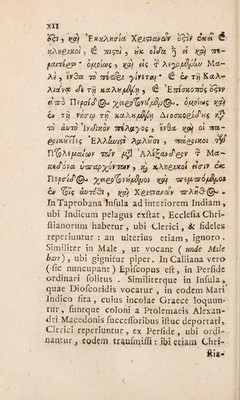 XII
ὅςι, καὶ Ἐκκλησία Χριςιανῶν ὅςιν ἐκεῖ ἒ
κληρικοὶ, ἒ πιςοὶ, ἐκ οἶδα ἢ εἰ καὶ πε-
ραιτέρω· ὁμοίως, καὶ εἰς τ λεγομθμω Μα-
λὲ, ἔνθα τὸ πέπερι γίνεται· ἒ ἐν τῇ Καλ-
λιάνα δὲ τῇ καλεμθμῃ, ἒ Ἐπίσκοπός ὅςιν
ἀπὸ Περσίδος χειροτονέμθμος. ὁμοίως καὶ
ἐν τῇ νήσῳ τῇ καλεμθμῃ Διοσκορίδες κατὰ
τὸ αὐτὸ Ἰνδικὸν πέλαγος, ἔνθα καὶ οἱ πα-
ροικοῦντες Ἑλληνιςὶ λαλοῦσι, πάροικοι τῶν
Πτολεμαίων τῶν μετ' Ἀλέξανδρον τ Μα-
κεδόνα ὑπάρχοντων, καὶ κληρικοί εἰσιν ἐκ
Περσίδος χειροτονέμθμοι καὶ πεμπόμθμοι
ἐν τοῖς αὐτόθι, καὶ Χριςιανῶν πλῆθος.
In Taprobana Insula ad interiorem Indiam,
ubi Indicum pelagus exstat, Ecclesia Chri-
stianorum habetur, ubi Clerici, & fideles
reperiuntur: an ulterius etiam, ignoro.
Similiter in Male, ut vocant (unde Male
barr), ubi gignitur piper. In Calliana vero
(sic nuncupant) Episcopus est, in Perside
ordinari solitus. Similiterque in Insula,
quae Dioscoridis vocatur, in eodem Mari
Indico sita, cujus incolae Graece loquun-
tur, suntque coloni a Ptolemaeis Alexan-
dri Macedonis successoribus istuc deportati,
Clerici reperiuntur, ex Perside, ubi ordi-
nantur, eodem trausmissi: ibi etiam Chri-
stia-